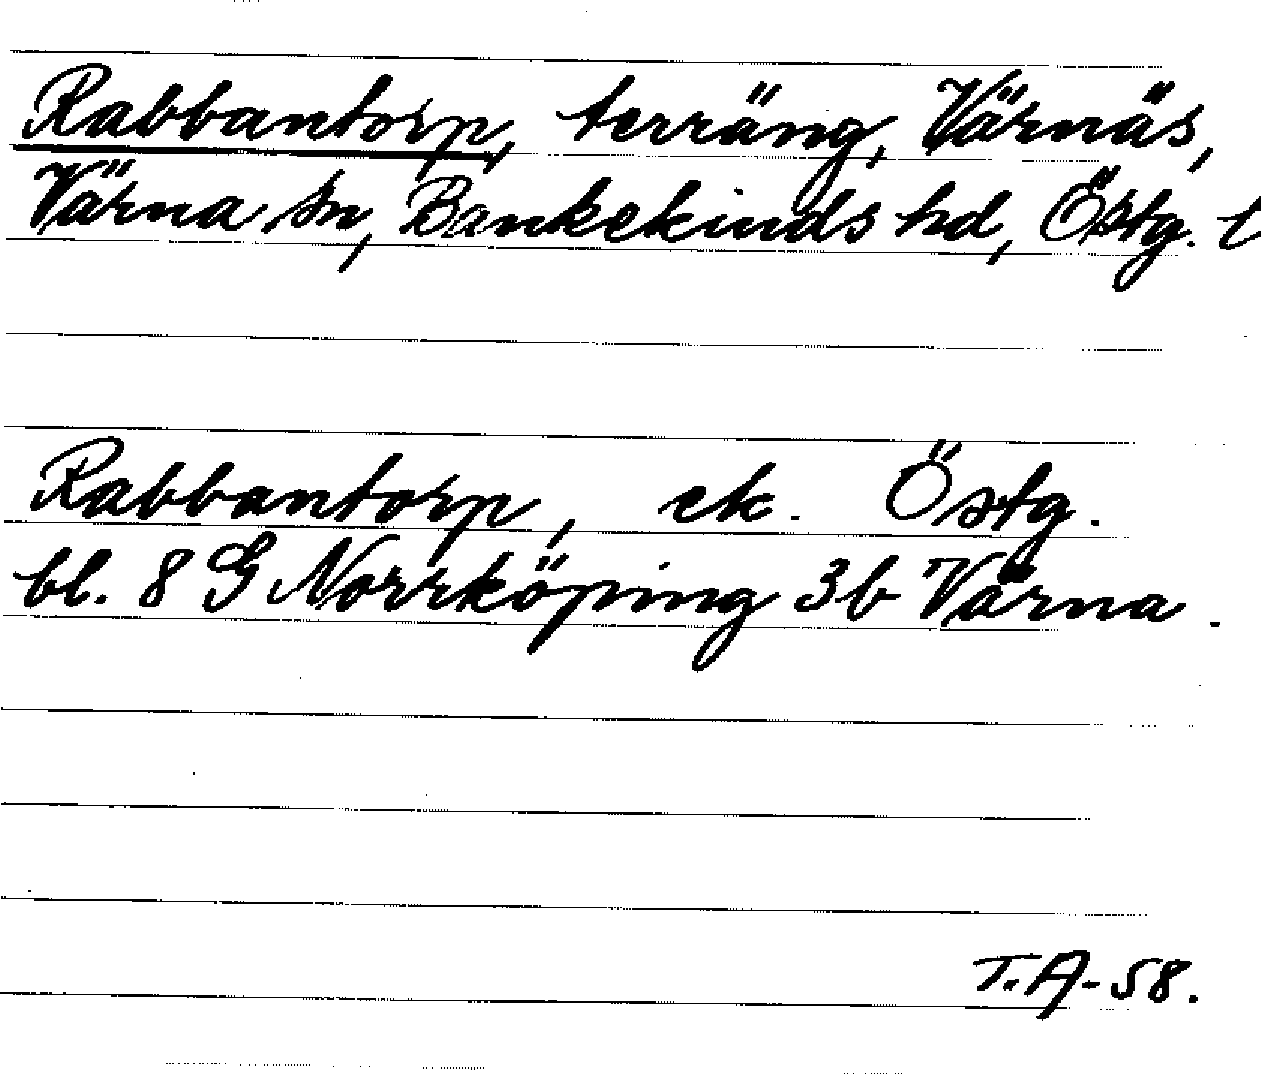 Rabbantorp, terräng, Värnäs,
Värna sn, Bankekinds hd, Östg. l
Rabbantorp, ek. Östg.
bl. 8 G Norrköping 3b Värna.
T.A-58.